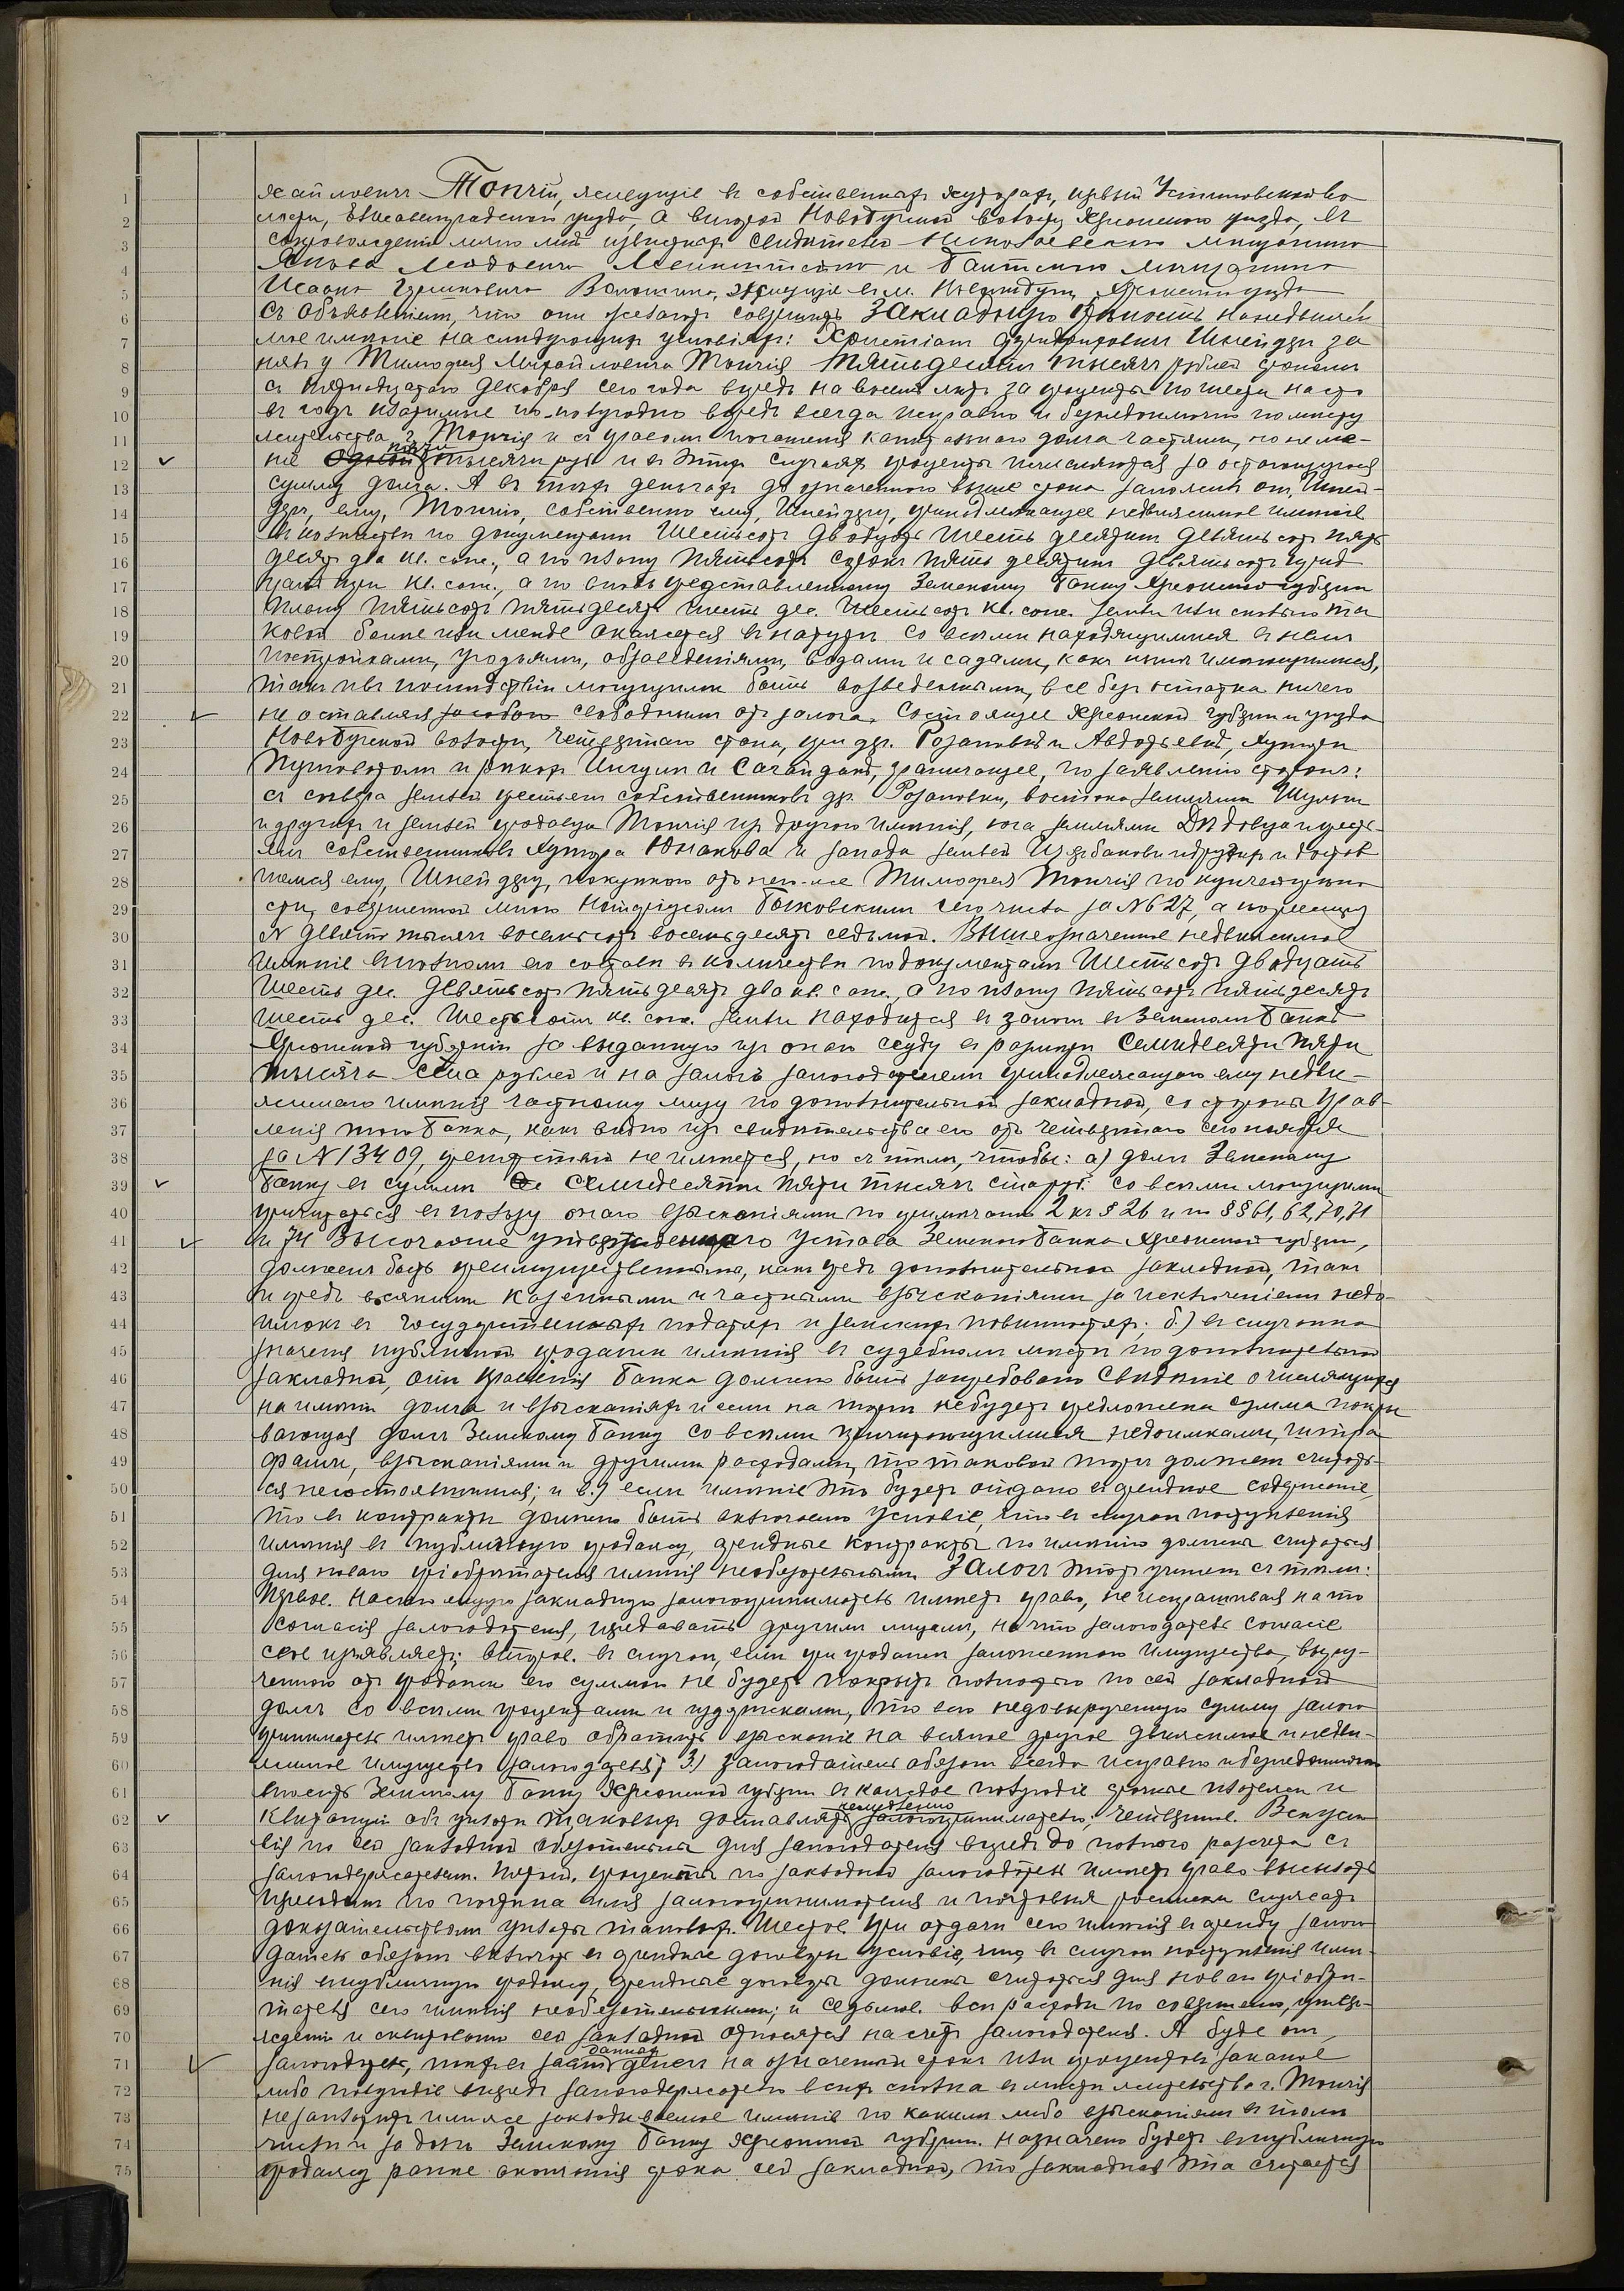 1 хайловичъ Топчій, живущіе въ собственныхъ хуторахъ, первый Устиновской во
2 лости, Елисаветградскаго уѣзда, а второй Новобугской волости, Херсонскаго уѣзда, въ
3 сопровожденіи лично мнѣ извѣстныхъ свидѣтелей Николаевскаго мѣщанина
4 и мѣщанина
5 Исаака живущіе въ м. Херсонскаго уѣзда,
6 съ объявленіемъ, что они желаютъ совершить Закладную крѣпость на недвижи
7 мое имѣніе на слѣдующихъ условіяхъ: Христіанъ Фридриховичъ Шнейдеръ за
8 нялъ у Тимофея Михайловича Топчія пятьдесятъ тысячъ рублей срокомъ
9 съ пятнадцатаго декабря сего года впредь на восемь лѣтъ за проценты по шести на сто
10 въ годъ платимые по полугодно впредь всегда исправно и безнедоимочно по мѣсту
11 жительства г. Топчія и съ правомъ погашенія капитальнаго долга частями, но не ме-
12 нѣе пяти тысячъ руб. и въ этихъ случаяхъ проценты исчисляются за остающуюся
13 сумму долга. А въ тѣхъ деньгахъ до означеннаго выше срока заложилъ онъ, Шней-
14 деръ, ему, Топчію, собственно ему, Шнейдеру, принадлежащее недвижимое имѣніе
15 въ количествѣ по документамъ шестьсотъ двадцать шесть десятинъ девятьсотъ пять
16 десятъ два кв. саж., а по плану пятьсотъ сорокъ пять десятинъ девятьсотъ
17 три кв. саж., а по вновь представленному Земскому Банку Херсонской губерніи
18 плану пятьсотъ пятьдесятъ шесть дес. шестьсотъ кв. саж. земли или сколько та
19 ковой болѣе или менѣе окажется въ натурѣ со всѣми находящимися въ немъ
20 постройками, угодьями, обзаведеніями, водами и садами, какъ нынѣ имѣющимися,
21 такъ и въ послѣдствіи могущими быть возведенными, все безъ остатка ничего
22 не оставляя свободнымъ отъ залога. Состоящее Херсонской губерніи и уѣзда
23 Новобугской волости, четвертаго стана, при дер. Розановкѣ и Авдотьевкѣ, хуторѣ
24 и рѣкахъ Ингулѣ и Сагайдакѣ, граничащее, по заявленію сторонъ:
25 съ сѣвера землей крестьянъ собственниковъ дер. Розановки, востока землями
26 и другихъ и землей продавца Топчія изъ другаго имѣнія, юга землями и кресть-
27 янъ собственниковъ хутора Юнакова и запада землей и другихъ и достав
28 шемся ему, Шнейдеру, покупкою отъ него-же Тимофея Топчія по купчей крѣпо
29 сти, совершенной мною Нотаріусомъ Быковскимъ сего числа за №627, а по реестру
30 № девять тысячъ восемьсотъ восемьдесятъ седьмой. Вышеозначенное недвижимое
31 имѣніе въ полномъ его составѣ въ количествѣ по документамъ шестьсотъ двадцать
32 шесть дес. девятьсотъ пятьдесятъ два кв. саж., а по плану пятьсотъ пятьдесятъ
33 шесть дес. шестьсотъ кв. саж. земли находится въ залогѣ въ Земскомъ Банкѣ
34 Херсонской губерніи за выданную изъ онаго ссуду въ размѣрѣ семидесяти пяти
35 тысячъ ста рублей и на залогъ залогодателемъ принадлежащаго ему недви-
36 жимаго имѣнія частному лицу по дополнительной закладной, со стороны Прав-
37 ленія того Банка, какъ видно изъ свидѣтельства его отъ четвертаго сего ноября
38 за №13409, препятствій не имѣется, но съ тѣмъ, чтобы: а) долгъ Земскому
39 Банку въ суммѣ семидесяти пяти тысячъ ста руб. со всѣми могущими
40 причитаться въ пользу онаго взысканіями по примѣчанію 2 къ §26 и по §§61, 62, 70, 71
41 и 74 Высочайше утвержденнаго Устава Земскаго Банка Херсонской губерніи,
42 долженъ быть преимущественнымъ, какъ предъ дополнительной закладной, такъ
43 и предъ всякими казенными и частными взысканіями за исключеніемъ недо-
44 имокъ въ государственныхъ податяхъ и земскихъ повинностяхъ; б.) въ случаѣ на
45 значенія публичной продажи имѣнія въ судебномъ мѣстѣ по дополнительной
46 закладной, отъ Правленія Банка должно быть затребовано свѣдѣніе о числящихся
47 на имѣніи долга и взысканіяхъ и если на торгѣ не будетъ предложена сумма покры
48 вающая долгъ Земскому Банку со всѣми причитающимися недоимками, штра
49 фами, взысканіями и другими расходами, то таковой торгъ долженъ считать-
50 ся несостоявшимся; и в.) если имѣніе это будетъ отдано въ арендное содержаніе,
51 то въ контрактѣ должно быть включено условіе, что въ случаѣ поступленія
52 имѣнія въ публичную продажу, арендные контракты по имѣнію должны считаться
53 для новаго пріобрѣтателя имѣнія необязательными. Залогъ этотъ учиненъ съ тѣмъ:
54 Первое. Настоящую закладную залогоприниматель имѣетъ право, не испрашивая на то
55 согласія залогодателя, передавать другимъ лицамъ, на что залогодатель согласіе
56 свое изъявляетъ; второе. въ случаѣ, если при продажѣ заложеннаго имущества, выру-
57 ченною отъ продажи его суммою не будетъ покрытъ полностію по сей закладной
58 долгъ со всѣми процентами и издержками, то всю недовырученную сумму залого
59 приниматель имѣетъ право обратить взысканіе на всякое другое движимое и недви-
60 жимое имущество залогодателя; 3.) залогодатель обязанъ всегда исправно и безнедоимочно
61 вносить Земскому Банку Херсонской губерніи въ каждое полугодіе срочные платежи и
62 квитанціи объ уплатѣ таковыхъ доставлять немедленно залогопринимателю; четвертое. Всѣ усло
63 вія по сей закладной обязательны для залогодателя впредь до полнаго разсчета съ
64 залогодержателемъ. Пятое. проценты по закладной залогодатель имѣетъ право высылать
65 переводомъ по почтѣ на имя залогопринимателя и почтовыя росписки служатъ
66 доказательствомъ уплаты таковыхъ. Шестое. при отдачѣ сего имѣнія въ аренду залого
67 датель обязанъ включать въ арендные договоры условіе, что, въ случаѣ поступленія имѣ-
68 нія въ публичную продажу, арендные договоры должны считаться для новаго пріобрѣ-
69 тателя сего имѣнія необязательными; и седьмое. всѣ расходы по совершенію, утвер-
70 жденію и сей закладной относятся на счетъ залогодателя. А буде онъ,
71 залогодатель, тѣхъ данныхъ денегъ на означенный срокъ или процентовъ за каное
72 либо полугодіе впередъ залогодержателю всѣхъ сполна въ мѣстѣ жительства г. Топчія
73 не заплатитъ или же закладываемое имѣніе по какимъ либо взысканіямъ въ томъ
74 числѣ и за долгъ Земскому Банку Херсонской губерніи назначено будетъ въ публичную
75 продажу ранѣе окончанія срока сей закладной, то закладная эта считается